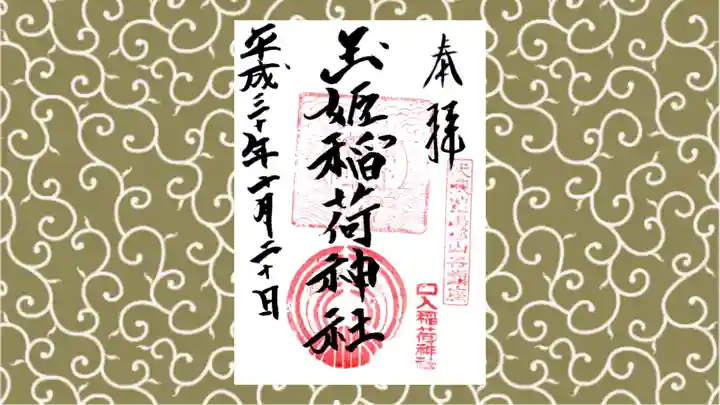 奉拝
玉姫稲荷神社
口入稲荷神社
平成三十年十月二十日